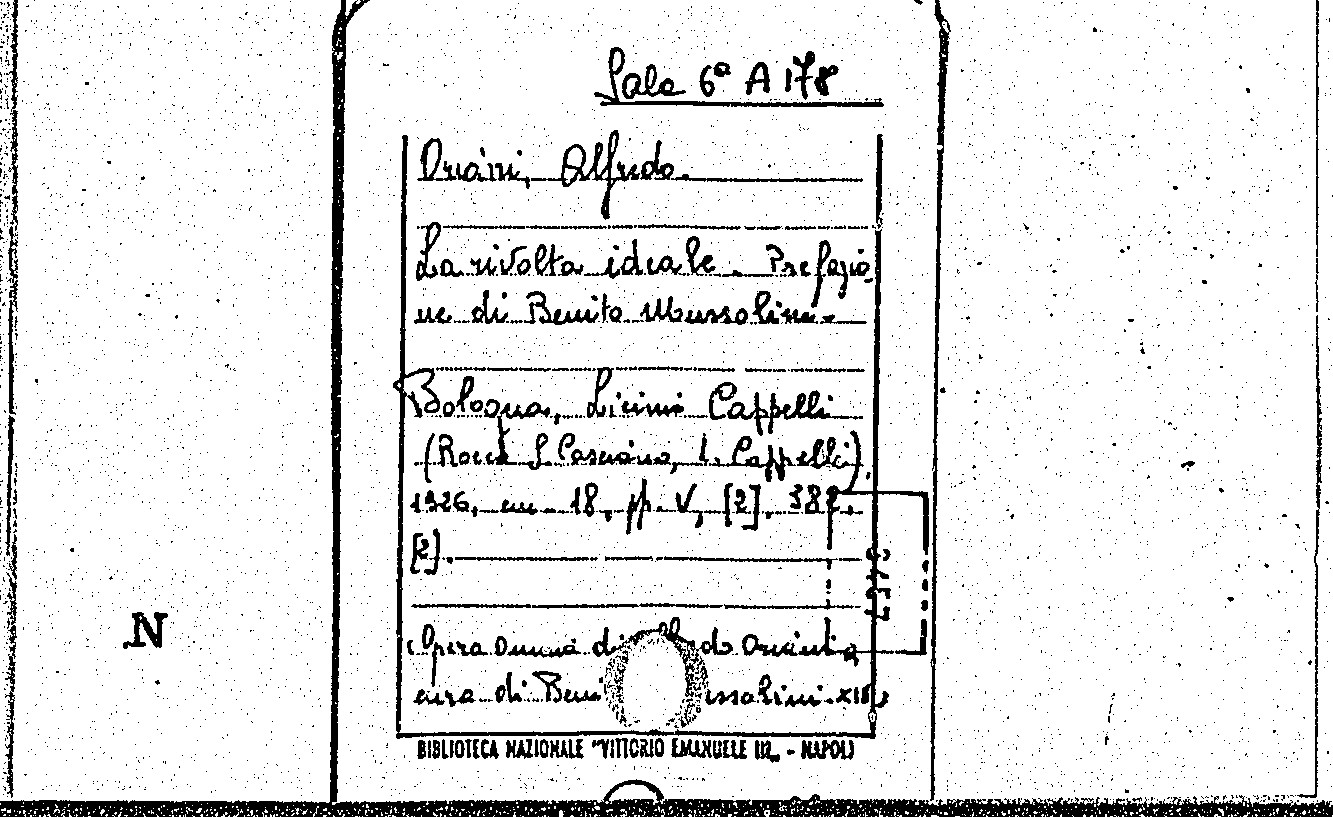 Sala 6ª A 178
Oriani, Alfredo.
La rivolta ideale. Prefazio
ne di Benito Mussolini.
Bologna, Licinio Cappelli
(Rocca S. Casciano, L. Cappelli),
1926, cm. 18, pp. V, [2], 382,
[2].
(Opera Omnia di do Oriani a
cura di Beni ussolini. XIII)
N
BIBLIOTECA NAZIONALE "VITTORIO EMANUELE III" - NAPOLI